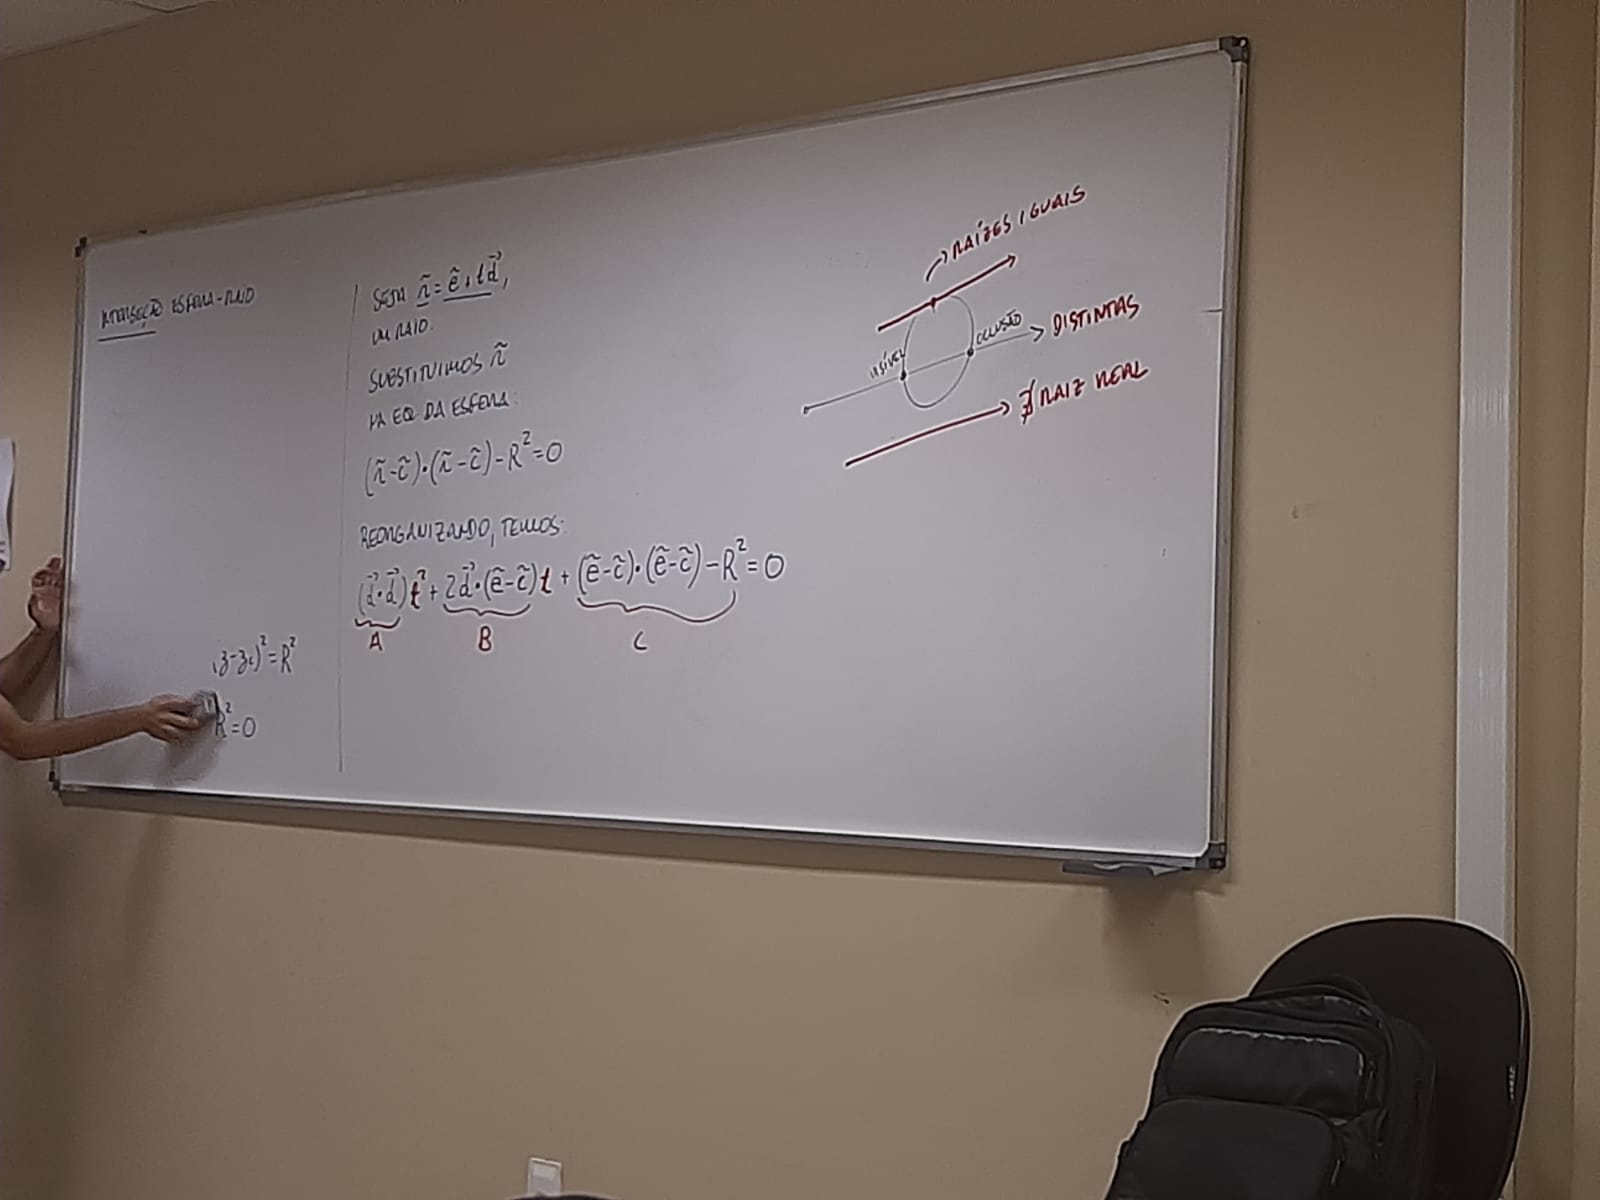 INTERSEÇÃO ESFERA-RAIO
z-zc)²=R²
R²=0
SEJA r̃=ẽ+td⃗,
UM RAIO.
SUBSTITUIMOS r̃
NA EQ DA ESFERA:
(r̃-c̃)·(r̃-c̃)-R²=0
REORGANIZANDO, TEMOS:
(d⃗·d⃗)t²+2d⃗·(ẽ-c̃)t+(ẽ-c̃)·(ẽ-c̃)-R²=0
A B C
RAÍZES IGUAIS
VISÍVEL OCLUSÃO DISTINTAS
∄ RAIZ REAL